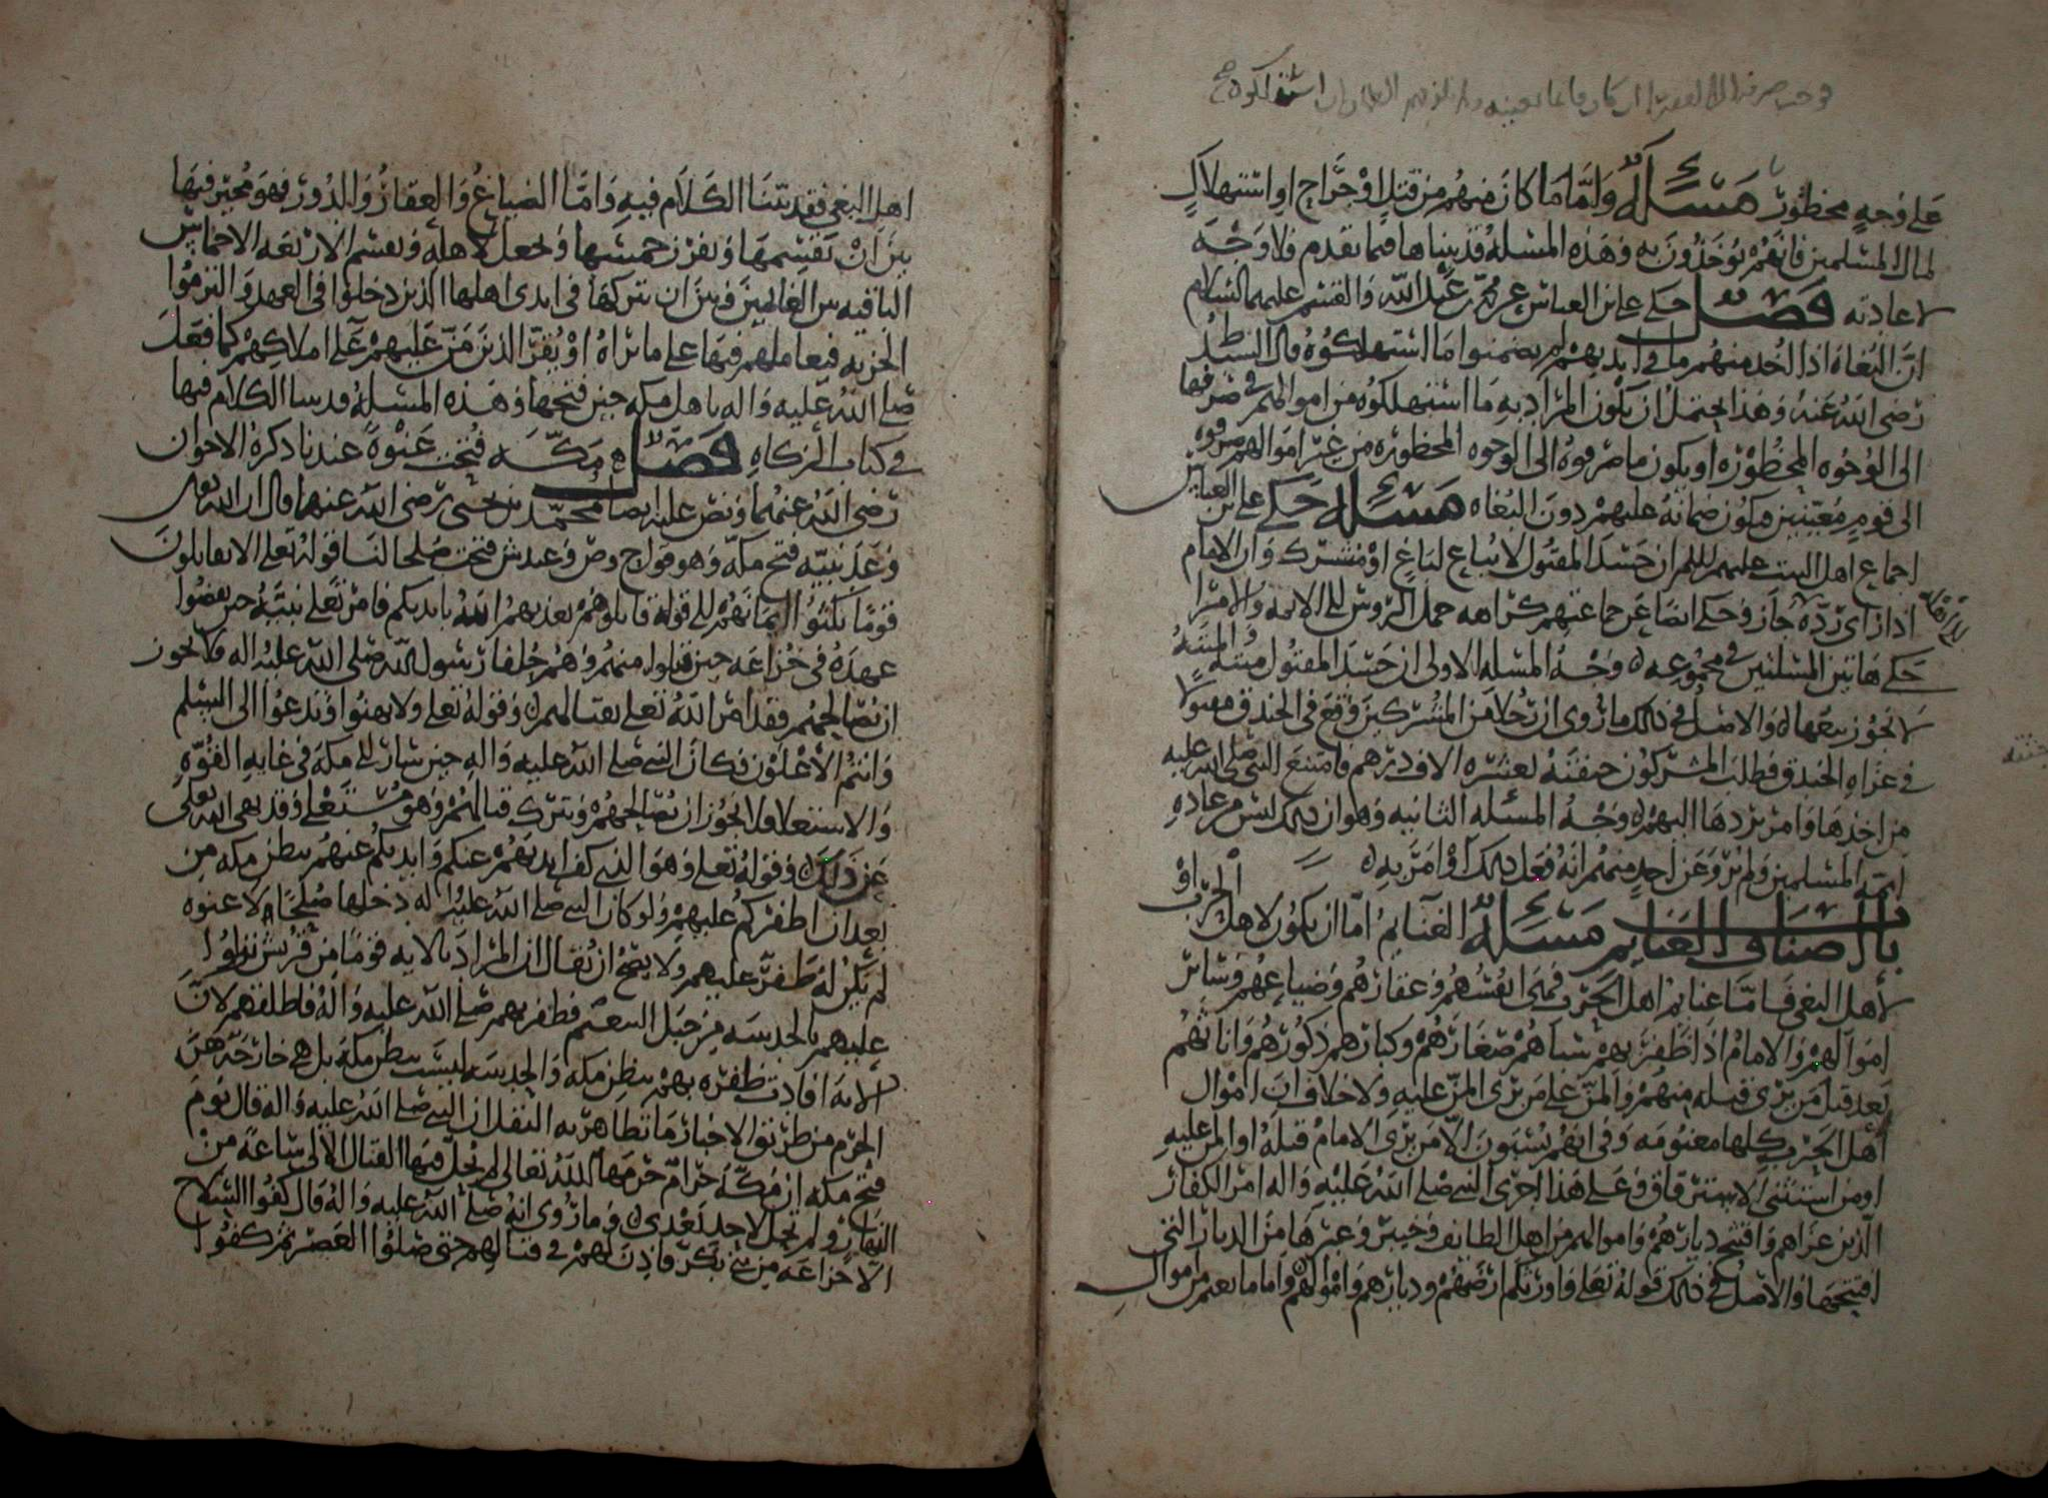 على وجه محظور مسألة وأما ما كان منهم من قتل او جراح او استهلاك
لمال المسلمين فانهم يؤخذون به وهذه المسلة قد بيناها فيما تقدم فلا وجه
لاعادته فصل حكى علي بن العباس عن محمد بن عبد الله والقسم عليهما السلام
ان البغاة اذا اخذ منهم ما في ايديهم لم يضمنوا ما استهلكوه قال السيد
رضى الله عنه وهذا يحتمل ان يكون المراد به ما استهلكوه من اموالهم في صرفها
الى الوجوه المحظورة او يكون ما صرفوه الى الوجوه المحظوره من غير اموالهم صرفوه
الى قوم معينين فيكون ضمانه عليهم دون البغاه مسألة حكى علي بن العباس
اجماع اهل البيت عليهم السلم ان جسد المقتول لا يباع لباغ او مشرك وان الامام
اذا رأى رده جاز وحكى ايضا عن جماعتهم كراهه حمل الروس الى الائمه والامرا
حكى هاتين المسلتين في مجموعه وجه المسله الاولى ان جسد المقتول ميتة والميتة
لا يجوز بيعها والاصل في ذلك ما روى ان رجلا من المشركين وقع في الخندق مقتولا
في غزاه الخندق فطلب المشركون جيفته بعشره الاف درهم فامتنع النبي صلى الله عليه
من اخذها وامر بردها اليهم وجه المسئله الثانيه وهو ان ذلك ليس من عادة
ائمة المسلمين ولم يرو عن احد منهم انه فعل ذلك او امر به
باب اصناف الغنايم مسألة الغنايم اما ان يكون لاهل الحرب او
لأهل البغي فاما غنايم اهل الحرب فهي انفسهم وعقارهم وضياعهم وسائر
اموالهم والامام اذا ظفر بهم سباهم صغارهم وكبارهم ذكورهم واناثهم
بعد قتل من يرى قتله منهم والمن على من يرى المن عليه ولا خلاف ان اموال
أهل الحرب كلها مغنومه وفي انهم يسبون الا من يرى الامام قتله او المن عليه
او من استثنى الاسترقاق وعلى هذا جرى النبي صلى الله عليه واله امر الكفار
الذين غزاهم وافتتح ديارهم واموالهم من اهل الطايف وخيبر وغيرها من الديار التي
افتتحها والاصل في ذلك قوله تعالى واورثكم ارضهم وديارهم واموالهم واما ما يغنم من اموال
اهل البغي فقد بينا الكلام فيه وأما الضياع والعقار والدور فهو مخير فيها
بين ان يقسمها ويفرز خمسها ويجعل لاهله ويقسم الاربعه الاخماس
الباقيه بين الغانمين وبين ان يتركها في ايدى اهلها الذين دخلوا في العهد والتزموا
الجزيه فيعاملهم فيها على ما يراه او يقر الذين من عليهم على املاكهم كما فعل
صلى الله عليه واله باهل مكه حين فتحها وهذه المسلة قد بينا الكلام فيها
في كتاب الزكاه فصل مكة فتحت عنوة عندنا ذكره الاخوان
رضى الله عنهما ونص عليه ايضا محمد بن يحيى رضى الله عنهما قال ان الله تعالى
وعد نبيه فتح مكه وهو قول ح وص وعند ش فتحت صلحا لنا قوله تعلى الا تقاتلون
قوما نكثوا ايمانهم الى قوله قاتلوهم يعذبهم الله بايديكم فامر تعلى نبيه حين نقضوا
عهده في خزاعه حين قتلوا منهم وهم حلفا رسول الله صلى الله عليه واله فلا يجوز
ان يصالحهم فقد امر الله تعلى بقتالهم وقوله تعلى ولا تهنوا وتدعوا الى السلم
وانتم الأعلون فكان النبي صلى الله عليه واله حين سار الى مكة في غايه القوة
والاستعلا فلا يجوز ان يصالحهم ويترك قتالهم وهو مستعلى وقد نهى الله تعالى
عن ذلك وقوله تعلى وهو الذي كف ايديهم عنكم وايديكم عنهم ببطن مكه من
بعد ان اظفركم عليهم ولو كان النبي صلى الله عليه واله دخلها صلحا لا عنوه
لم يكن له ظفر عليهم ولا يصح ان يقال ان المراد بالايه قوما من قريش نزلوا
عليهم بالحديبيه من جبل التنعيم فظفر بهم صلى الله عليه واله فاطلقهم لان
الاية افادت ظفره بهم ببطن مكه والحديبيه ليست ببطن مكة بل هي خارجه عن
الحرم من طريق الاخبار ما تظاهر به النقل ان النبي صلى الله عليه واله قال يوم
فتح مكه ان مكة حرام حرمها الله تعالى لم يحل فيها القتال الا لي ساعة من
النهار ولم تحل لاحد بعدي وما روى انه صلى الله عليه واله قال كفوا السلاح
الا خزاعه من بني بكر فاذن لهم في قتالهم حتى صلوا العصر ثم كفوا